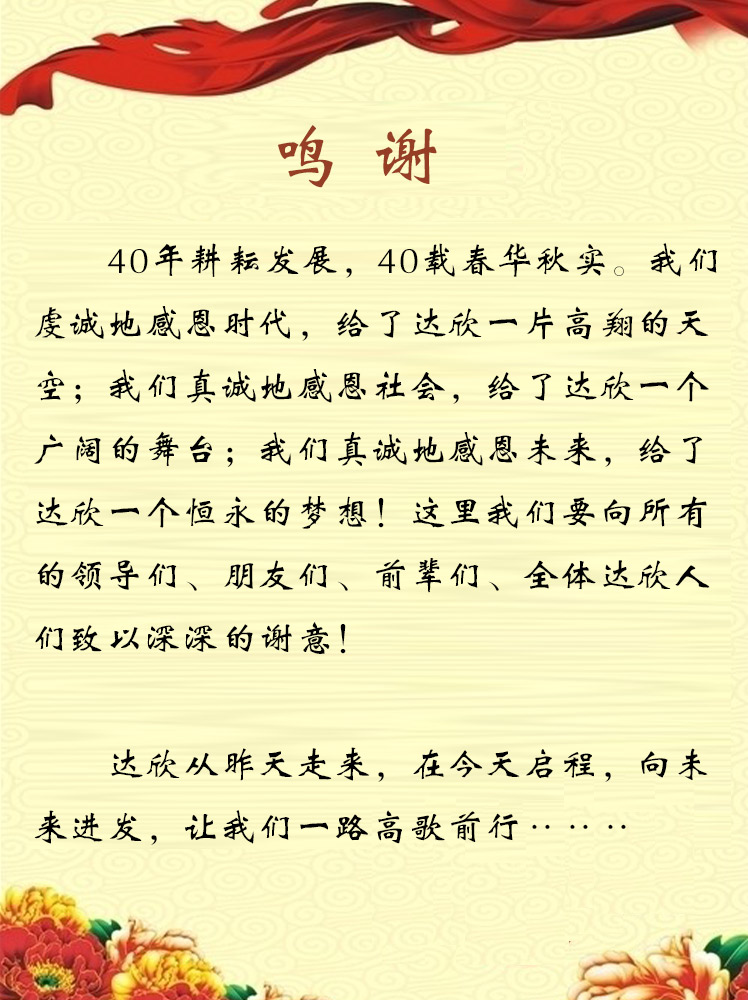 鸣 谢
40年耕耘发展，40载春华秋实。我们
虔诚地感恩时代，给了达欣一片高翔的天
空；我们真诚地感恩社会，给了达欣一个
广阔的舞台；我们真诚地感恩未来，给了
达欣一个恒永的梦想！这里我们要向所有
的领导们、朋友们、前辈们、全体达欣人
们致以深深的谢意！
达欣从昨天走来，在今天启程，向未
来进发，让我们一路高歌前行······